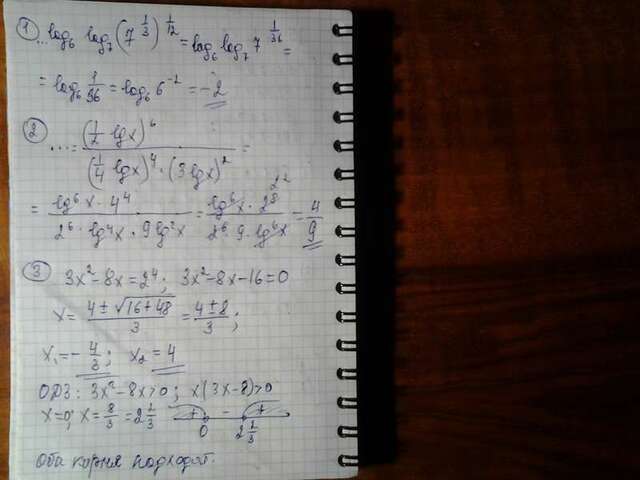 ① ... log₆ log₇ (7^(1/3))^(1/12) = log₆ log₇ 7^(1/36) =
= log₆ 1/36 = log₆ 6⁻² = -2
② ... = (1/2 lgx)⁶ / ((1/4 lgx)⁴ · (3lgx)²) =
= lg⁶x · 4⁴ / (2⁶ · lg⁴x · 9lg²x) = lg⁶x · 2⁸ / (2⁶ · 9 · lg⁶x) = 4/9
③ 3x² - 8x = 2⁴; 3x² - 8x - 16 = 0
x = (4 ± √(16+48)) / 3 = (4 ± 8) / 3;
x₁ = -4/3; x₂ = 4
ОДЗ: 3x² - 8x > 0; x(3x - 8) > 0
x = 0; x = 8/3 = 2 1/3 + - +
0 2 1/3
Оба корня подходят.